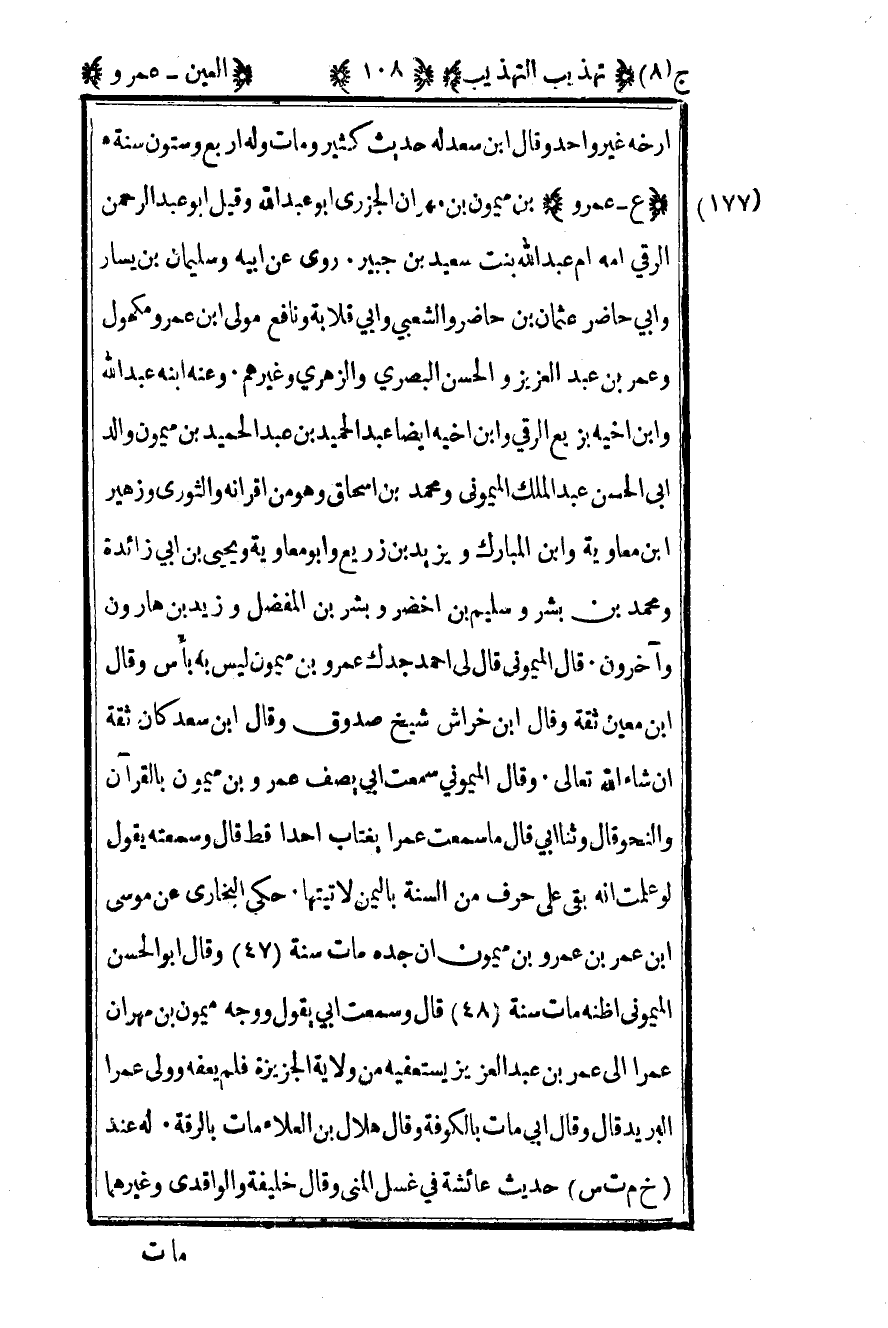 ج (٨) ﴿ تهذيب التهذيب ﴾ ﴿ ١٠٨ ﴾ ﴿ العين - عمرو ﴾
ارخه غير واحد وقال ابن سعد له حديث كثير ومات وله اربع وستون سنة ٠
(١٧٧) ﴿ ع - عمرو ﴾ بن ميمون بن مهران الجزرى ابو عبدالله وقيل ابو عبدالرحمن
الرقي امه ام عبدالله بنت سعيد بن جبير ٠ روى عن ابيه وسليمان بن يسار
وابي حاضر عثمان بن حاضر والشعبي وابي قلابة ونافع مولى ابن عمر ومكحول
وعمر بن عبد العزيز و الحسن البصري والزهري وغيرهم ٠ وعنه ابنه عبدالله
وابن اخيه بزيع الرقي وابن اخيه ايضا عبدالحميد بن عبدالحميد بن ميمون والد
ابى الحسن عبدالملك الميمونى ومحمد بن اسحاق وهو من اقرانه والثورى وزهير
ابن معاوية وابن المبارك ويزيد بن زريع وابو معاوية ويحيى بن ابي زائدة
ومحمد بن بشر و سليم بن اخضر و بشر بن المفضل و زيد بن هارون
وآخرون ٠ قال الميمونى قال لى احمد جدك عمرو بن ميمون ليس به بأس وقال
ابن معين ثقة وقال ابن خراش شيخ صدوق وقال ابن سعد كان ثقة
ان شاء الله تعالى ٠ وقال الميموني سمعت ابي يصف عمرو بن ميمون بالقرآن
والنحو قال وثنا ابي قال ما سمعت عمرا يغتاب احدا قط قال وسمعته يقول
لو علمت انه بقى على حرف من السنة باليمن لاتيتها ٠ حكي البخارى عن موسى
ابن عمر بن عمرو بن ميمون ان جده مات سنة (٤٧) وقال ابو الحسن
الميمونى اظنه مات سنة (٤٨) قال وسمعت ابي يقول ووجه ميمون بن مهران
عمرا الى عمر بن عبدالعزيز يستعفيه من ولاية الجزيزة فلم يعفه وولى عمرا
البريد قال وقال ابي مات بالكوفة وقال هلال بن العلاء مات بالرقة ٠ له عند
(خ م ت س) حديث عائشة في غسل المنى وقال خليفة والواقدى وغيرهما
مات